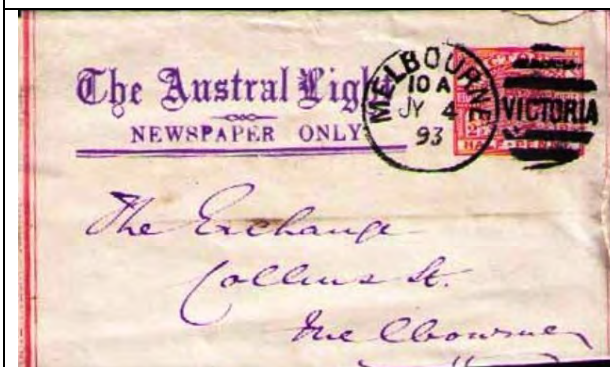 The Austral Light
NEWSPAPER ONLY
MELBOURNE
10 A
JY 4
93
VICTORIA
HALF-PENNY
The Exchange
Collins St.
Melbourne